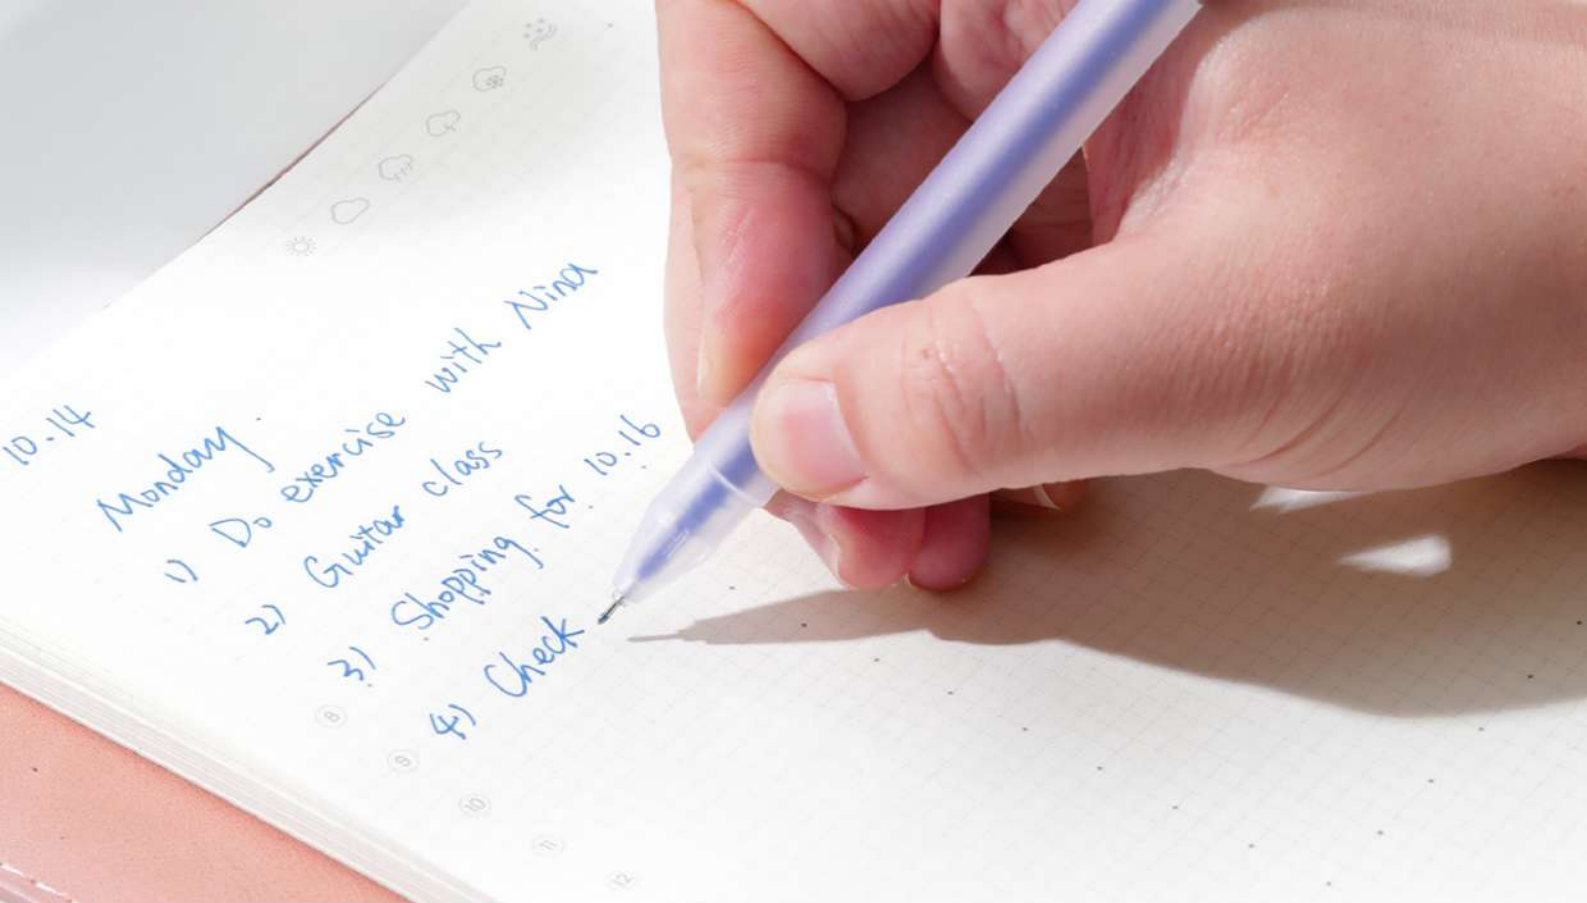 10.14
Monday.
1) Do exercise with Nina
2) Guitar class
3) Shopping for 10.16
4) Check
8
9
10
11
12